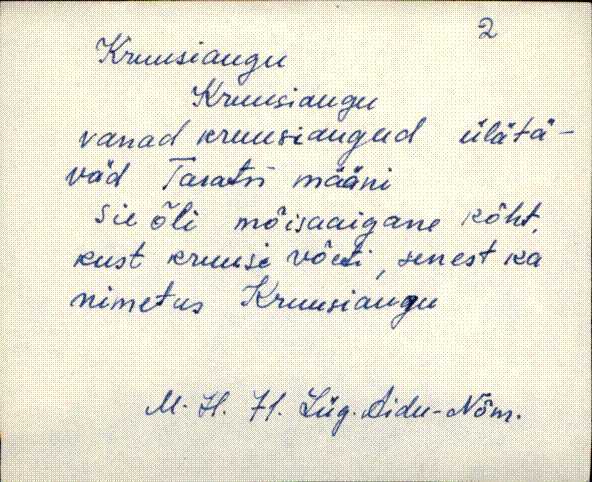 2
Kruusiaugu
Kruusiaugu
vanad kruusiaugud ülätä-
väd Taratri määni
Sie õli mõisaaigane kõht,
kust kruusi võeti, senest ka
nimetus Kruusiaugu
M. H. 71. Lüg. Aidu-Nõm.